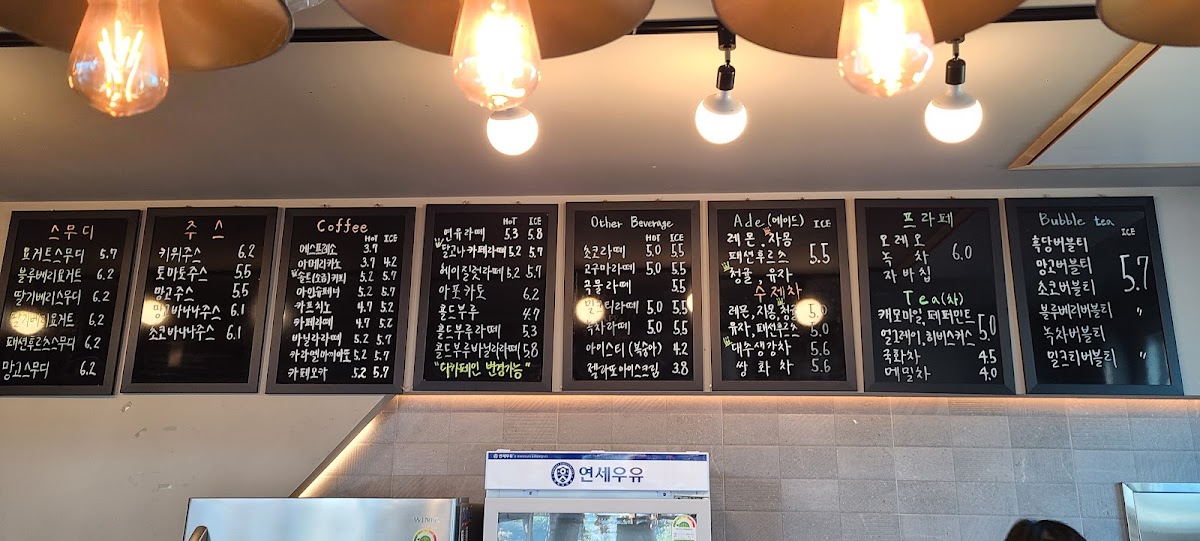 스무디
요거트스무디 5.7
블루베리요거트 6.2
딸기베리스무디 6.2
요거트 6.2
패션후르츠스무디 6.2
망고스무디 6.2
주스
키위주스 6.2
토마토주스 5.5
망고주스 5.5
망고바나나주스 6.1
초코바나나주스 6.1
Coffee
HOT ICE
에스프레소 3.7
아메리카노 3.7 4.2
솔트(소금)커피 5.2 5.7
아인슈페너 5.2 5.7
카프치노 4.7 5.2
카페라떼 4.7 5.2
바닐라라떼 5.2 5.7
카라멜마끼아또 5.2 5.7
카페모카 5.2 5.7
HOT ICE
연유라떼 5.3 5.8
달고나카페라떼 5.2 5.7
헤이릴넛라떼 5.2 5.7
아포카토 6.2
콜드부루 4.7
콜드부루라떼 5.3
콜드부루바닐라라떼 5.8
"디카페인 변경가능"
Other Beverage
HOT ICE
쵸코라떼 5.0 5.5
고구마라떼 5.0 5.5
곡물라떼 5.5
밀크티라떼 5.0 5.5
녹차라떼 5.0 5.5
아이스티 (복숭아) 4.2
젤라또아이스크림 3.8
Ade (에이드) ICE
레몬, 자몽
패션후르츠 5.5
청귤, 유자
수제차
레몬, 자몽, 청귤
유자, 패션후르츠 5.0
대추생강차 5.6
쌍화차 5.6
프라페
오레오
녹차 6.0
자바칩
Tea(차)
캐모마일, 페퍼민트
얼그레이, 히비스커스 5.0
국화차 4.5
메밀차 4.0
Bubble tea
ICE
흑당버블티
망고버블티 5.7
쵸코버블티
블루베리버블티 "
녹차버블티
밀크티버블티 "
연세우유